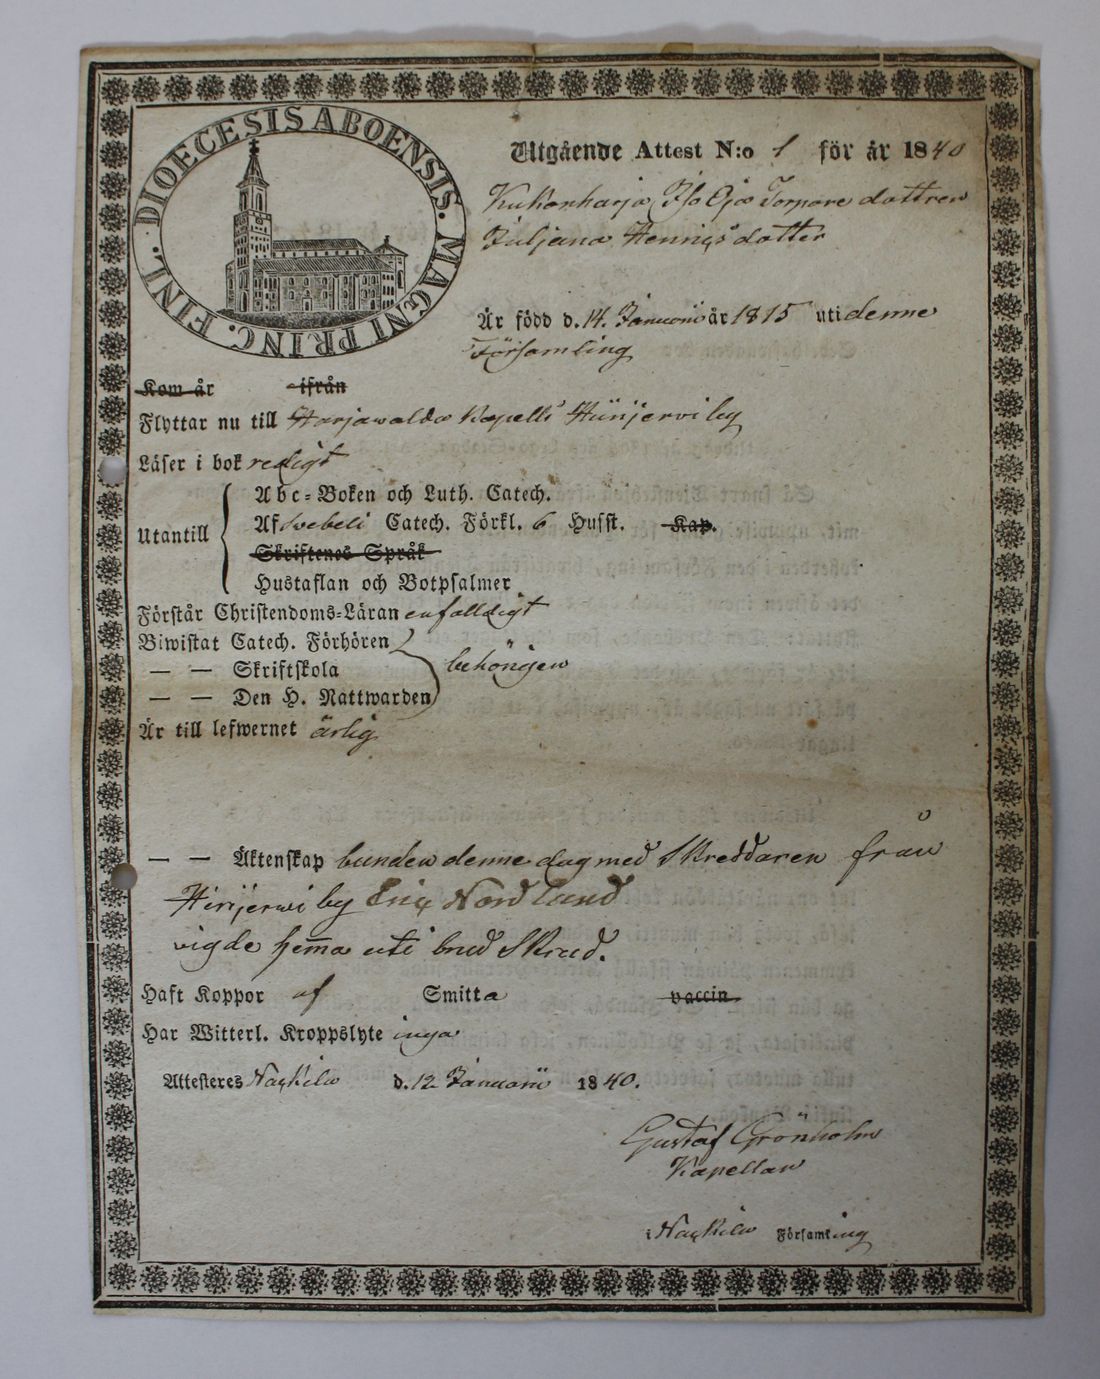 DIOECESIS ABOENSIS. MAGNI PRINC. FINL.
Utgående Attest N:o 1 för år 1840
Kukonharja Iso Eja Torpare dottren
Juljana Henriksdotter
Är född d. 14. Januarii år 1815 uti denne
Församling
Kom år ifrån
Flyttar nu till Harjawalda Kapells Hiirijervi by
Läser i bok redigt
Utantill
Abc-Boken och Luth. Catech.
Af Svebeli Catech. Förkl. 6 Husst. Kap.
Skriftenes Språk
Hustaflan och Botpsalmer
Förstår Christendoms-Läran enfalldigt
Biwistat Catech. Förhören
— — Skriftskola behörigen
— — Den H. Nattwarden
Är till lefwernet ärlig
— — Äktenskap bunden denne dag med Skreddaren från
Hirijerwi by Eric Nordlund
vigde hemma uti brud Skrud.
Haft Koppor af Smitta vaccin
Har Witterl. Kroppslyte inga
Attesteres Nackila d. 12 Januarii 1840.
Gustaf Grönholm
Kapellan
i Nackila Församling